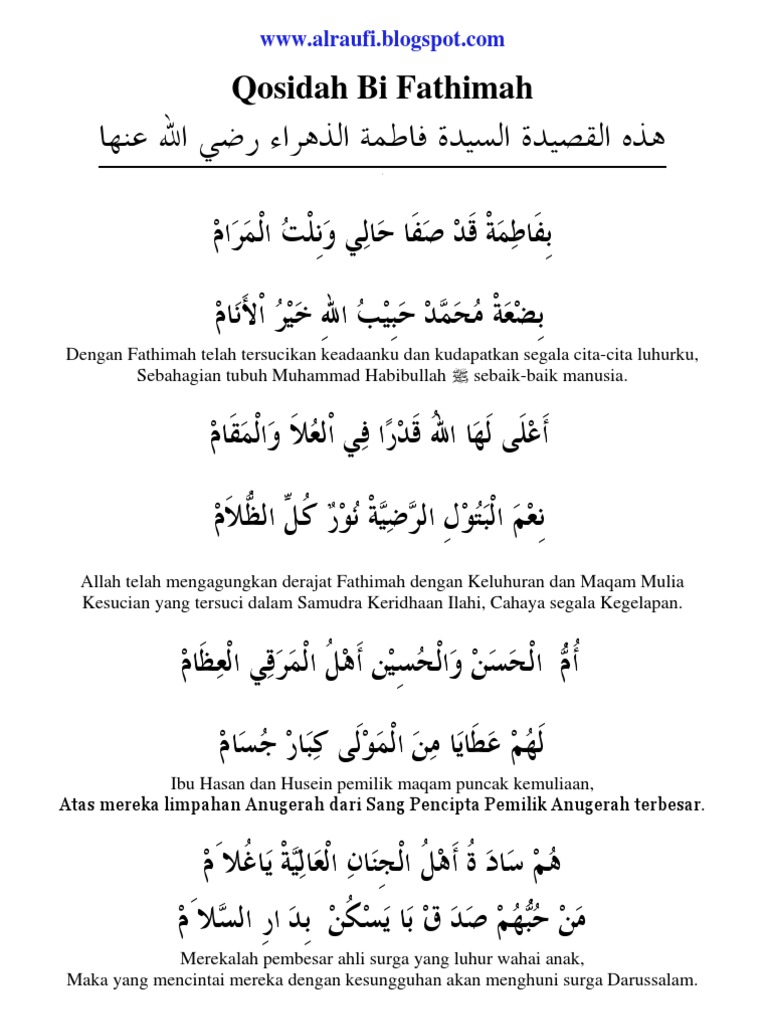 www.alraufi.blogspot.com
Qosidah Bi Fathimah
هذه القصيدة السيدة فاطمة الذهراء رضي الله عنها
بِفَاطِمَةْ قَدْ صَفَا حَالِي وَنِلْتُ الْمَرَامْ
بِضْعَةْ مُحَمَّدْ حَبِيْبُ اللهِ خَيْرُ اْلأَنَامْ
Dengan Fathimah telah tersucikan keadaanku dan kudapatkan segala cita-cita luhurku,
Sebahagian tubuh Muhammad Habibullah ﷺ sebaik-baik manusia.
أَعْلَى لَهَا اللهُ قَدْرًا فِي اْلعُلاَ وَالْمَقَامْ
نِعْمَ الْبَتُوْلِ الرَّضِيَّةْ نُوْرٌ كُلِّ الظُّلاَمْ
Allah telah mengagungkan derajat Fathimah dengan Keluhuran dan Maqam Mulia
Kesucian yang tersuci dalam Samudra Keridhaan Ilahi, Cahaya segala Kegelapan.
أُمُّ الْحَسَنْ وَالْحُسِيْن أَهْلُ الْمَرَقِي الْعِظَامْ
لَهُمْ عَطَايَا مِنَ الْمَوْلَى كِبَارْ جُسَامْ
Ibu Hasan dan Husein pemilik maqam puncak kemuliaan,
Atas mereka limpahan Anugerah dari Sang Pencipta Pemilik Anugerah terbesar.
هُمْ سَادَ ةُ أَهْلُ الْجِنَانِ الْعَالِيَّةْ يَاغُلاَ مْ
مَنْ حُبُّهُمْ صَدَ قْ بَا يَسْكُنْ بِدَ ارِ السَّلاَ مْ
Merekalah pembesar ahli surga yang luhur wahai anak,
Maka yang mencintai mereka dengan kesungguhan akan menghuni surga Darussalam.